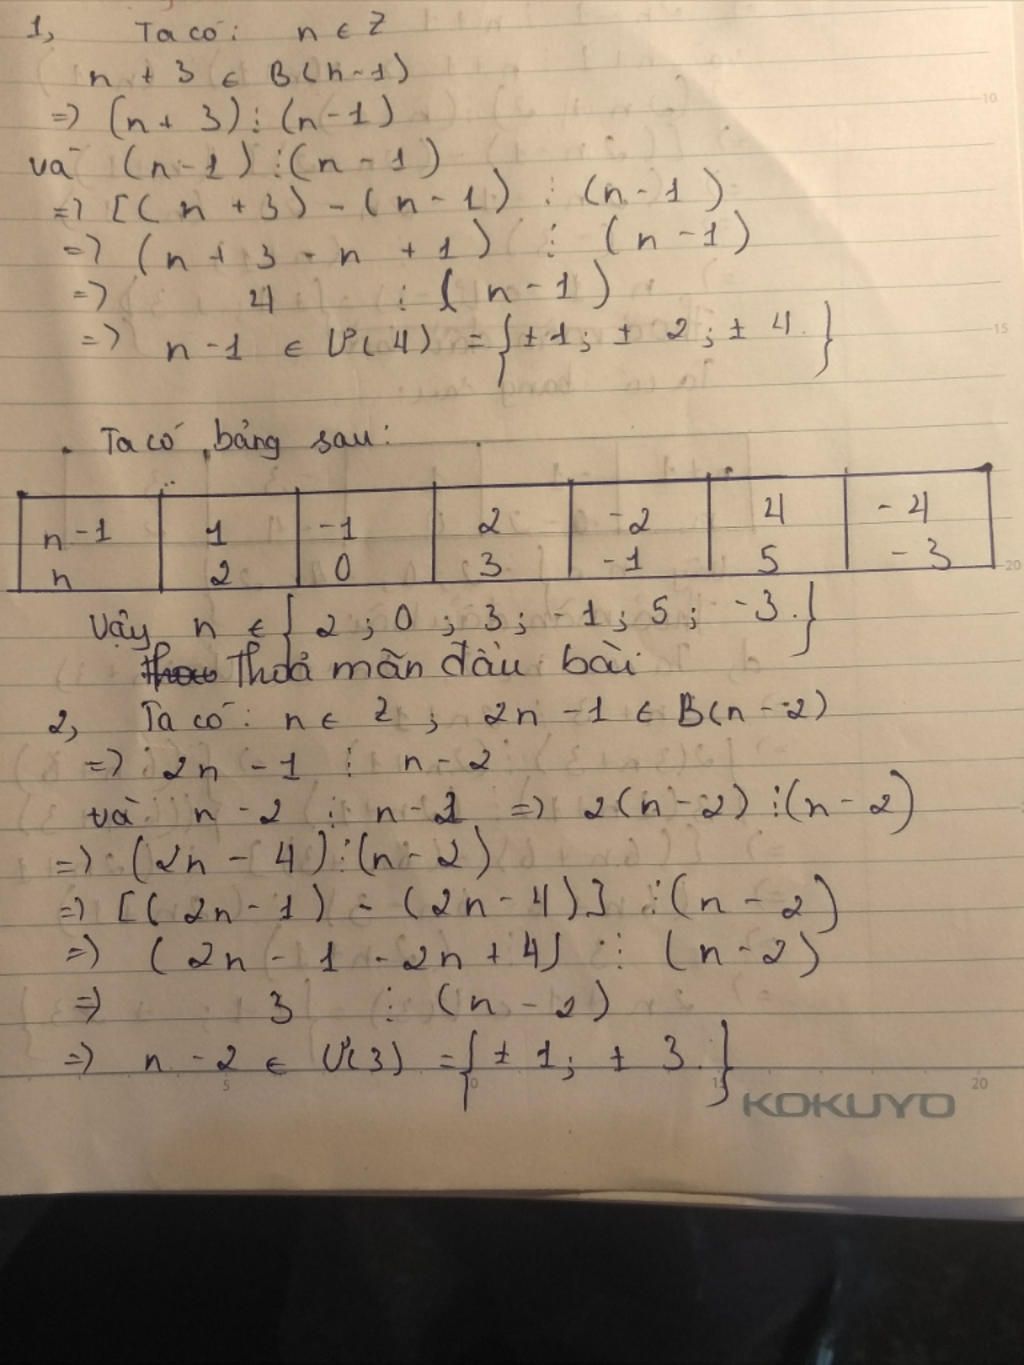 1, Ta có: n ∈ Z
n + 3 ∈ B(n-1)
=> (n + 3) ⋮ (n-1)
và (n-1) ⋮ (n-1)
=> [(n + 3) - (n-1) ⋮ (n-1)
=> (n + 3 - n + 1) ⋮ (n-1)
=> 4 ⋮ (n-1)
=> n-1 ∈ Ư(4) = {±1; ±2; ±4.}
. Ta có bảng sau:
n-1 1 -1 2 -2 4 -4
n 2 0 3 -1 5 -3
Vậy n ∈ {2; 0; 3; -1; 5; -3.}
Thoả mãn đầu bài
2, Ta có: n ∈ Z; 2n - 1 ∈ B(n-2)
=> 2n - 1 ⋮ n-2
và n-2 ⋮ n-2 => 2(n-2) ⋮ (n-2)
=> (2n - 4) ⋮ (n-2)
=> [(2n-1) - (2n-4)] ⋮ (n-2)
=> (2n - 1 - 2n + 4) ⋮ (n-2)
=> 3 ⋮ (n-2)
=> n-2 ∈ Ư(3) = {±1; ±3.}
KOKUYO
10
15
20
5
20